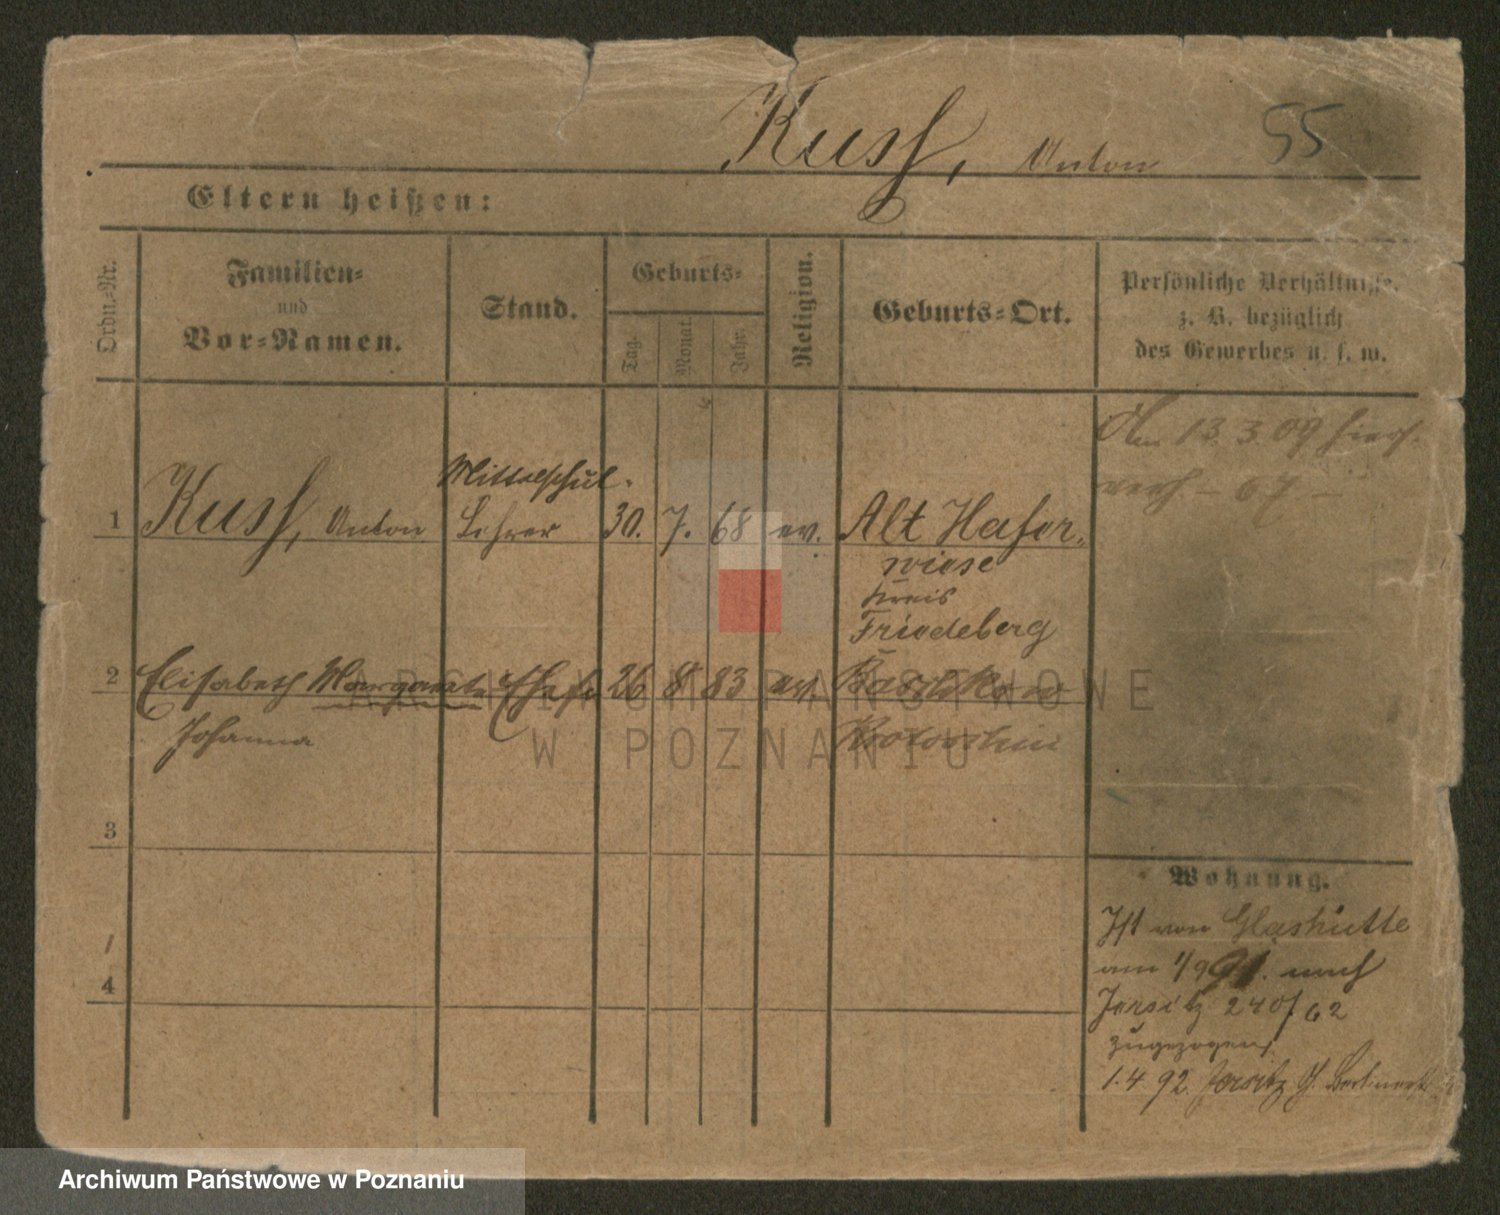 Kuss, Anton 55
Eltern heißen:
Ordn.-Nr.
Familien-
und
Vor-Namen.
Stand.
Geburts-
Tag.
Monat.
Jahr.
Religion.
Geburts-Ort.
Persönliche Verhältnisse,
z. B. bezüglich
des Gewerbes u. s. w.
13. 3. 09
67
Mittelschul-
1 Kuss, Anton Lehrer 30. 7. 68 ev. Alt Hafer-
wiese
Kreis
Friedeberg
2 Elisabeth Margarete Ehefr 26 8 83 ev.
Johanna
3
4
Wohnung.
Ist von Glashütte
am 1/9 91. nach
Jersitz 240/62
zugezogen.
1. 4 92. Jersitz
ARCHIWUM PAŃSTWOWE
W POZNANIU
Archiwum Państwowe w Poznaniu